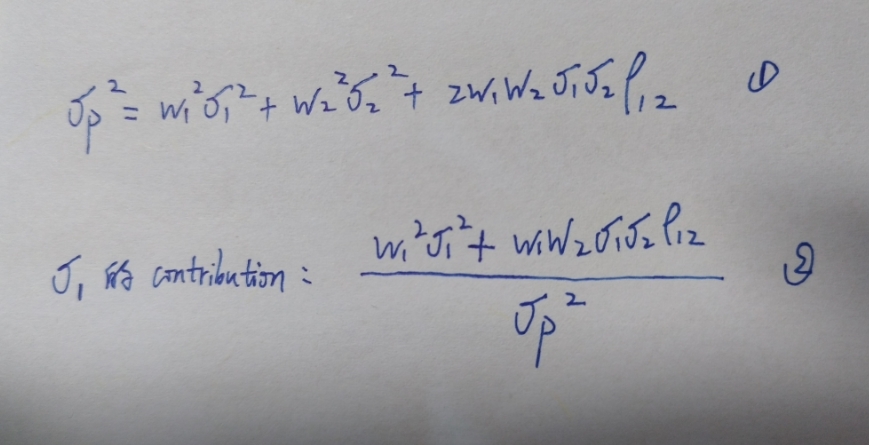 σp² = w₁²σ₁² + w₂²σ₂² + 2w₁w₂σ₁σ₂ρ₁₂ ①
σ₁ 的 contribution : (w₁²σ₁² + w₁w₂σ₁σ₂ρ₁₂) / σp² ②